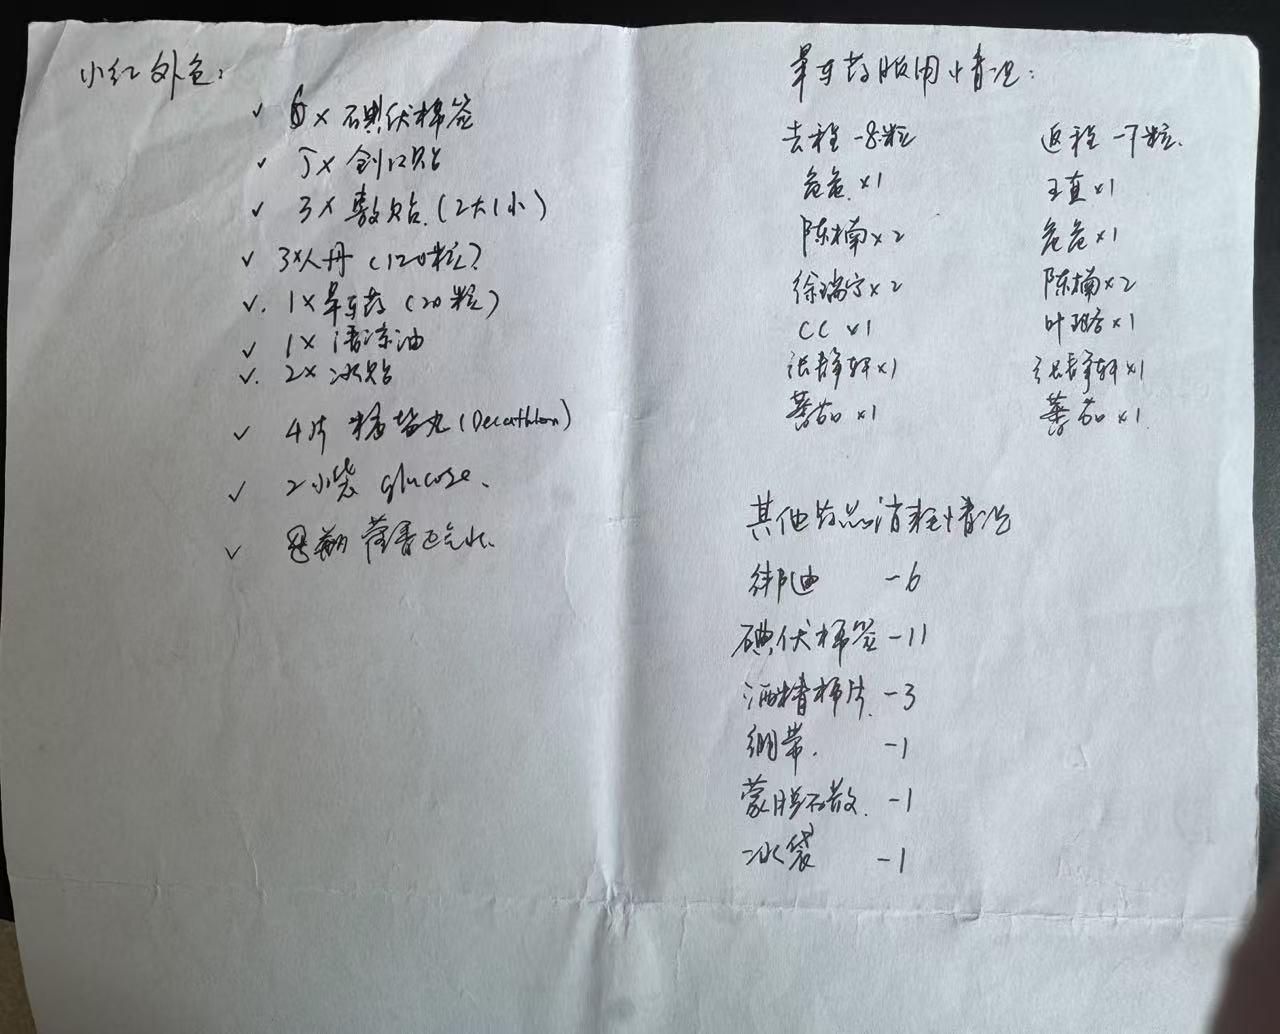 小红外包:
✓ 6× 碘伏棉签
✓ 5× 创口贴
✓ 3× 敷贴.(2大1小)
✓ 3×人丹 (120粒)
✓. 1×晕车药 (20粒)
✓ 1× 清凉油
✓. 2× 冰贴
✓ 4片 糖盐丸(Decathlon)
✓ 2小袋 glucose.
✓ 藿香正气水.
晕车药服用情况:
去程 -8粒
危危 ×1
陈楠×2
徐瑞宁×2
CC ×1
张静轩×1
蕃茄 ×1
返程 -7粒.
王直×1
危危×1
陈楠×2
叶珺×1
张静轩×1
蕃茄×1.
其他药品消耗情况
绑迪 -6
碘伏棉签 -11
酒精棉片. -3
绷带. -1
蒙脱石散. -1
冰袋 -1